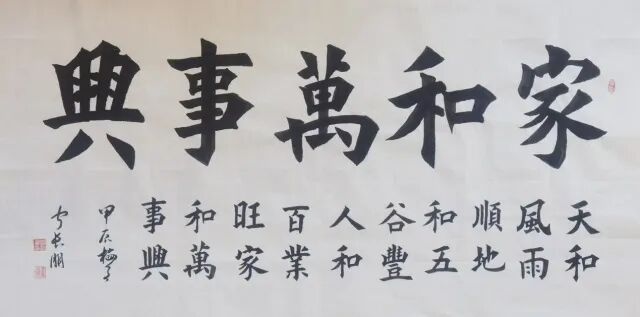 家和萬事興
天和
風雨
順地
和五
谷豐
人和
百業
旺家
和萬
事興
甲辰梅